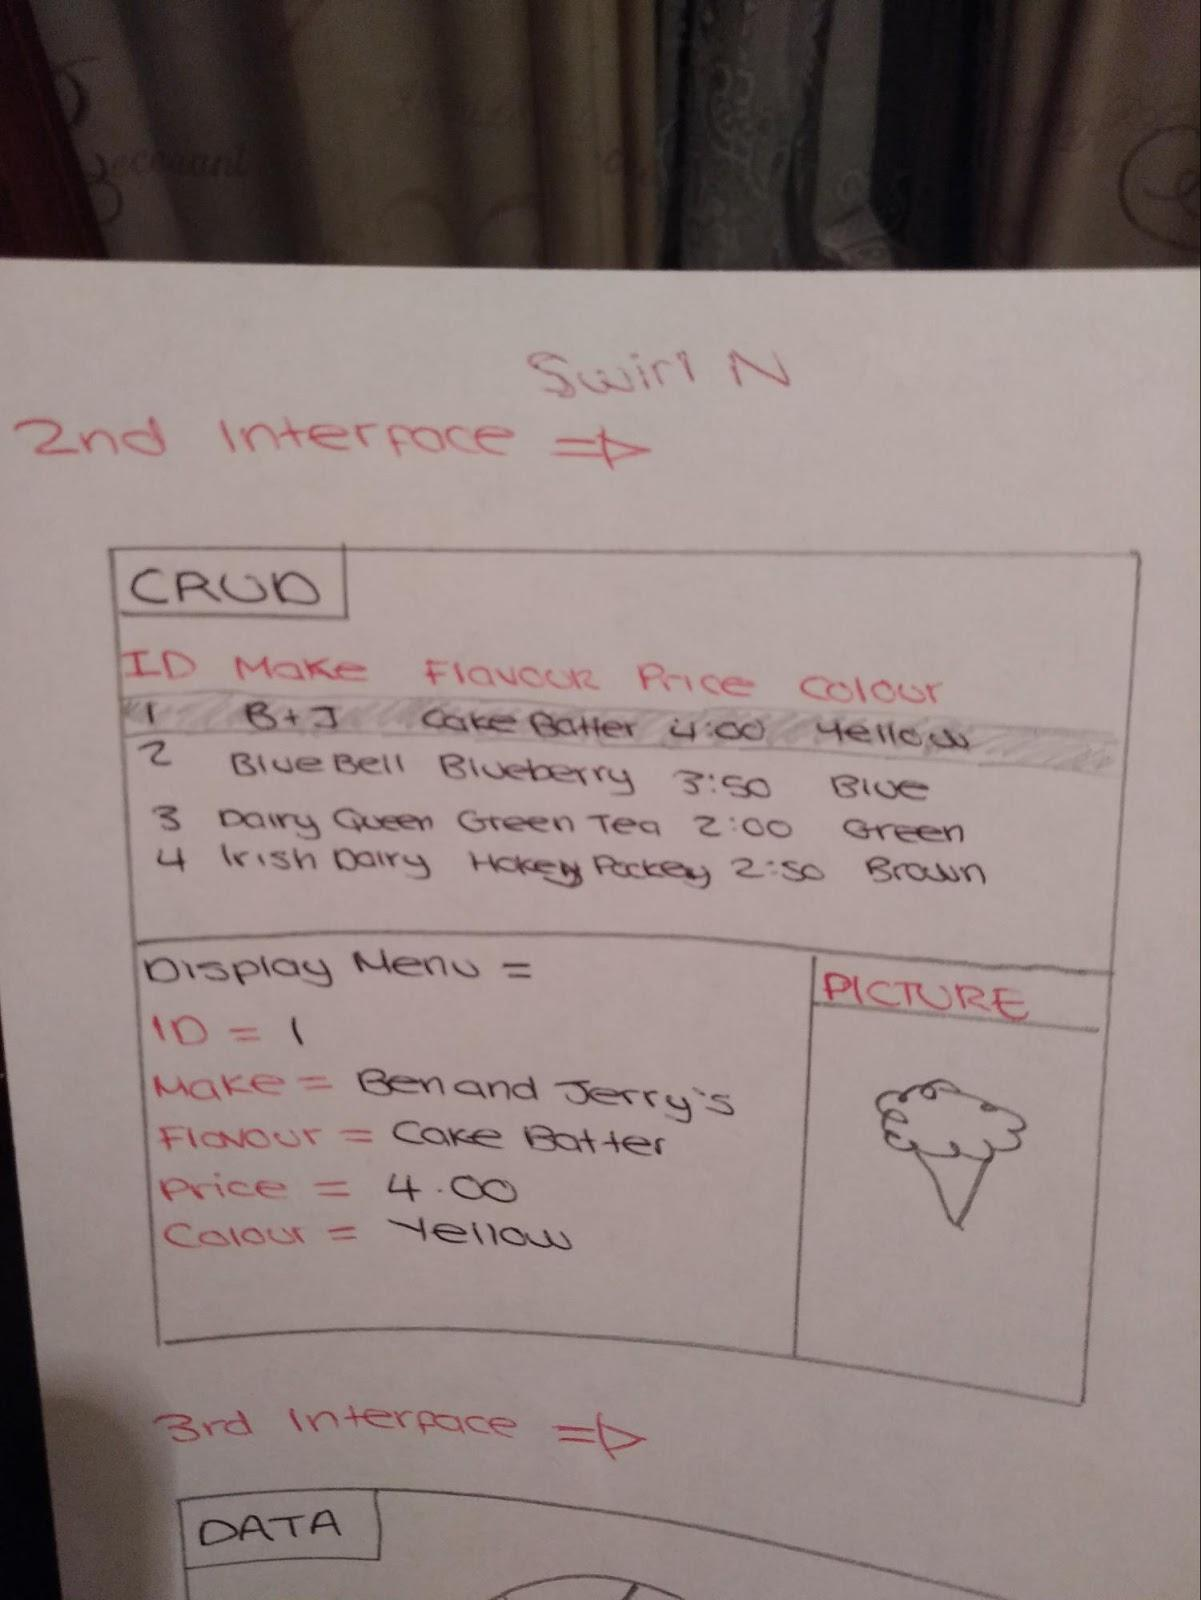 Swirl N
2nd Interface =>
CRUD
ID Make Flavour Price Colour
1 B+J Cake Batter 4:00 Yellow
2 Blue Bell Blueberry 3:50 Blue
3 Dairy Queen Green Tea 2:00 Green
4 Irish Dairy Hokey Pockey 2:50 Brown
Display Menu =
ID = 1
Make = Ben and Jerry's
Flavour = Cake Batter
Price = 4.00
Colour = Yellow
PICTURE
3rd Interface =>
DATA